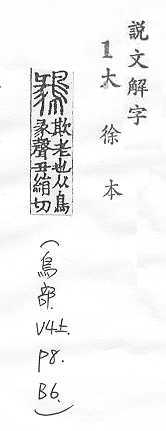 說文解字
1大徐本
鶨
欺老也从鳥
彖聲丑絹切
(鳥部.
V4上.
P8.
B6.)